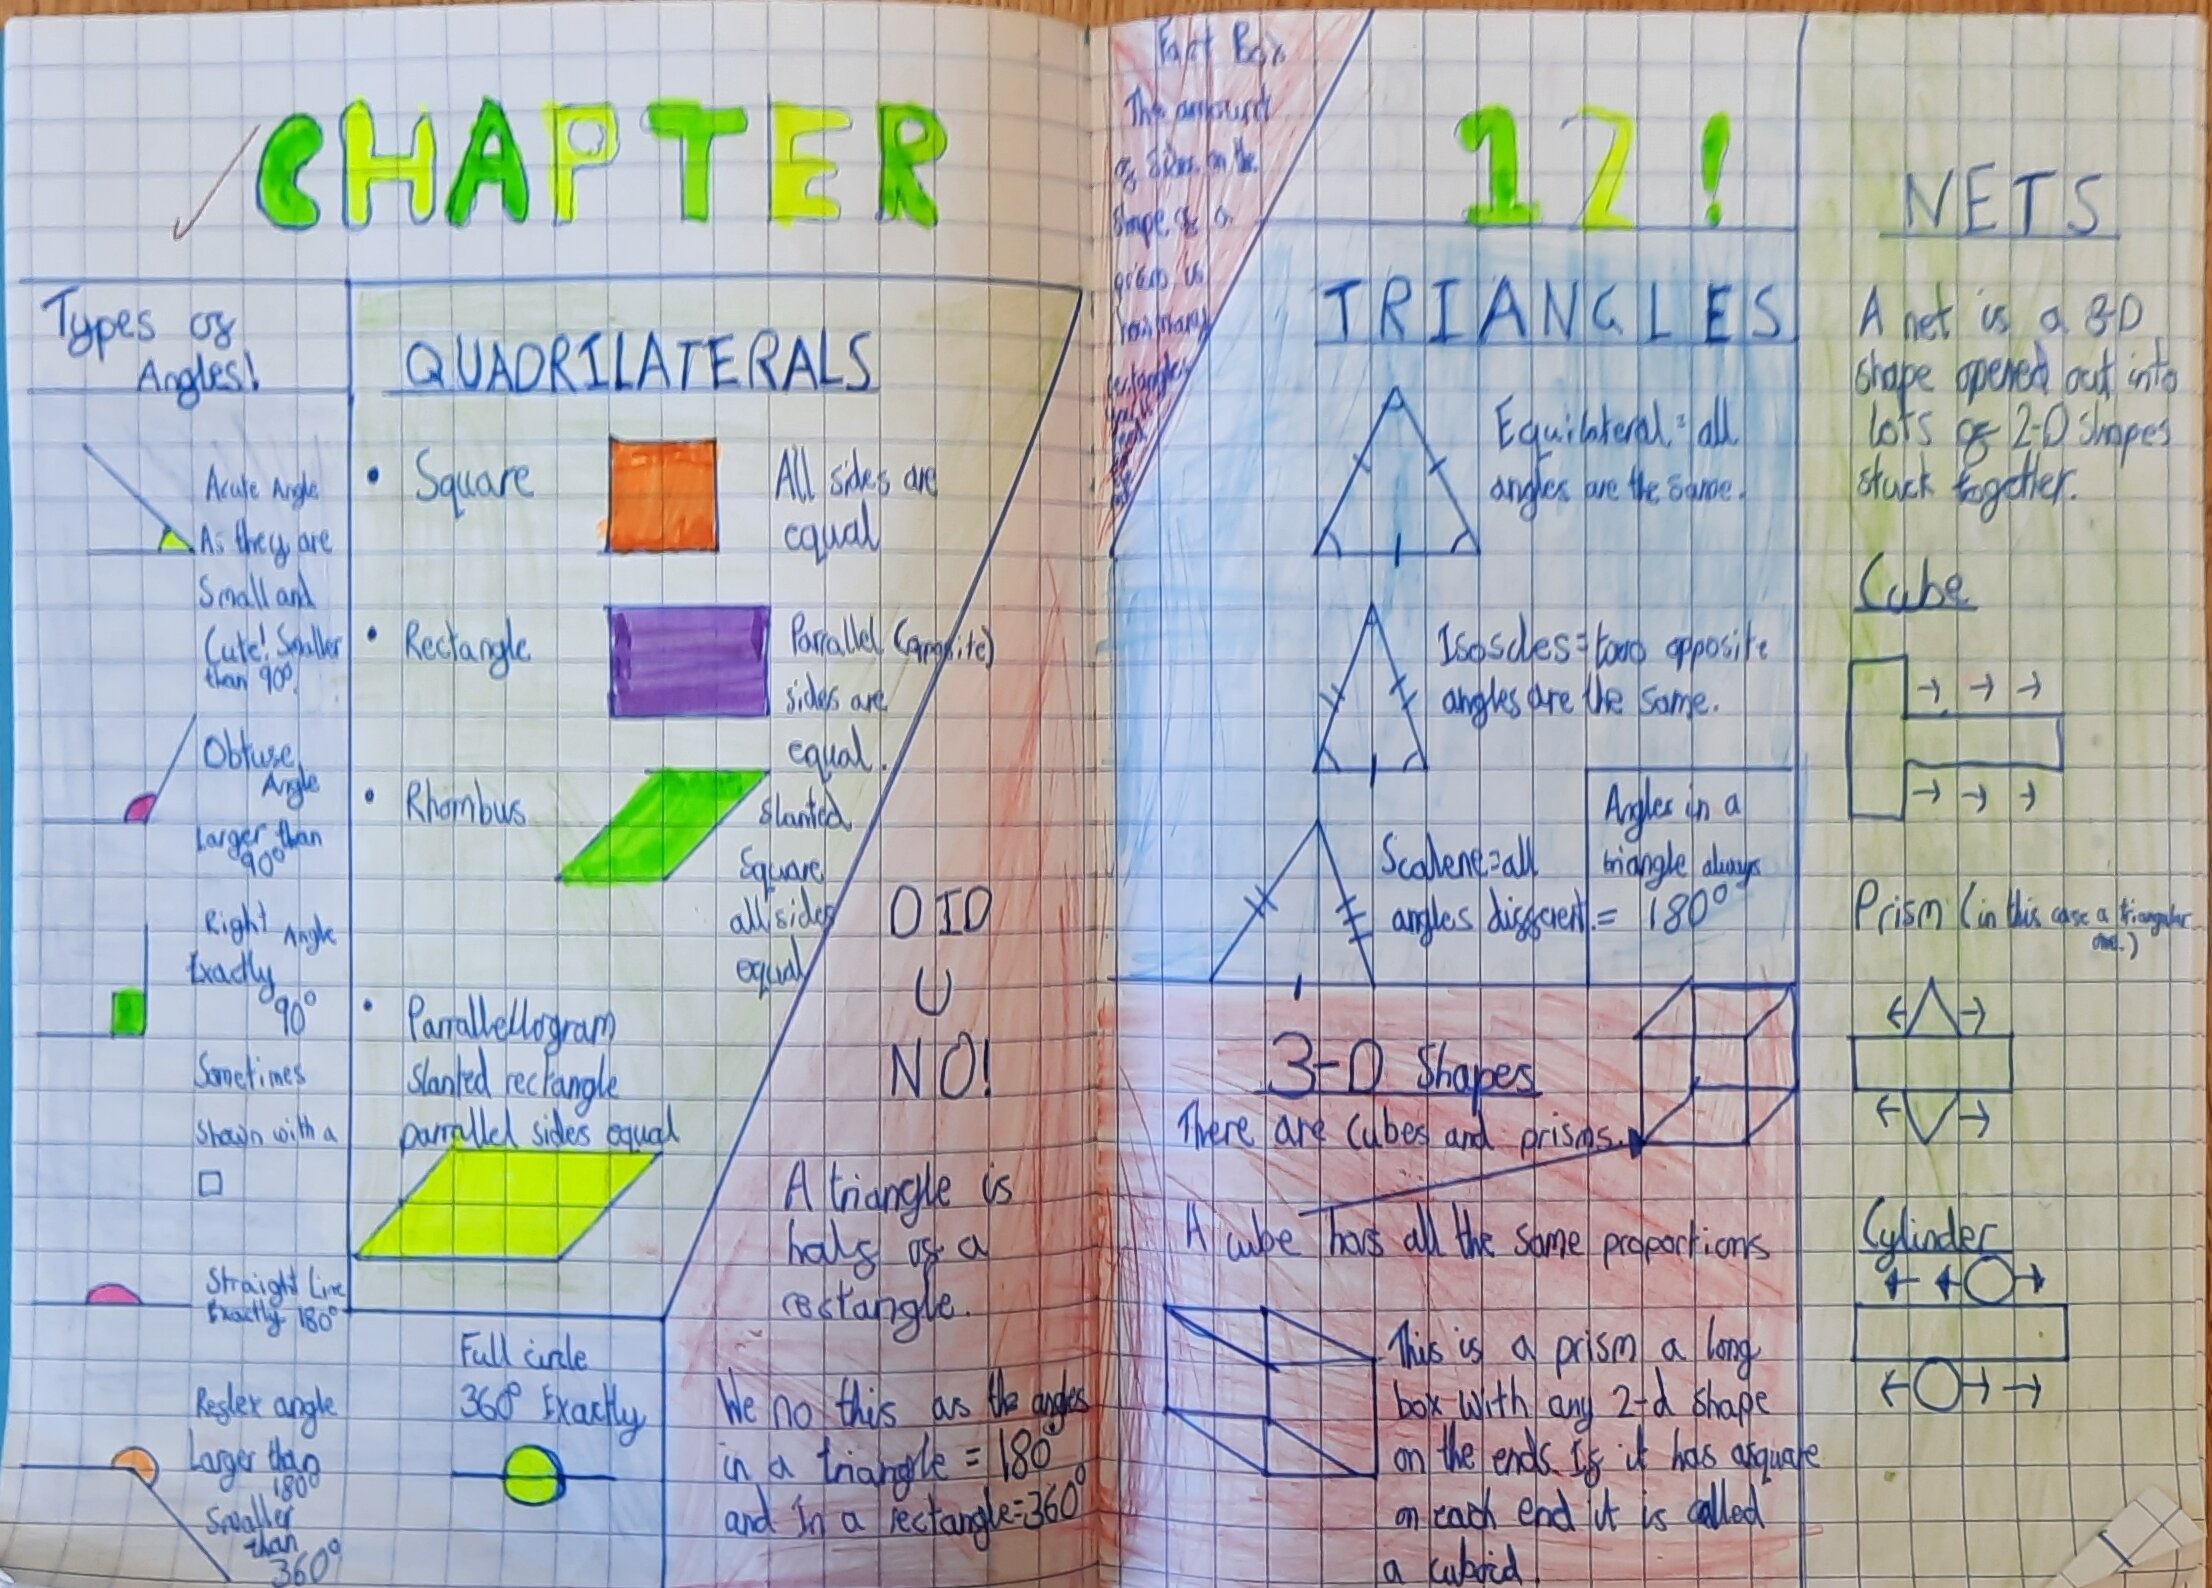 CHAPTER
Types of
Angles!
Acute Angle
As they are
Small and
Cute! Smaller
than 90°.
Obtuse
Angle
Larger than
90°
Right Angle
Exactly
90°
Sometimes
Shown with a
Straight Line
Exactly 180°
Reflex angle
Larger than
180°
Smaller
than
360°
QUADRILATERALS
• Square
All sides are
equal
• Rectangle
Parrallel (opposite)
sides are
equal.
• Rhombus
Slanted
Square
all sides
equal
• Parrallellogram
Slanted rectangle
parrallel sides equal
Full circle
360° Exactly
DID
U
NO!
A triangle is
half of a
rectangle.
We no this as the angles
in a triangle = 180°
and in a rectangle=360°
Fact Box
The amount
of sides on the
shape of a
prism is
how many
rectangles
12!
TRIANGLES
Equilateral = all
angles are the same.
Isoscles = two opposite
angles are the same.
Scalene = all
angles different.
Angles in a
triangle always
= 180°
3-D Shapes
There are cubes and prisms.
A cube has all the same proportions
This is a prism a long
box with any 2-d shape
on the ends. If it has asquare
on each end it is called
a cuboid.
NETS
A net is a 3-D
shape opened out into
lots of 2-D shapes
stuck together.
Cube
Prism (in this case a triangular
one.)
Cylinder